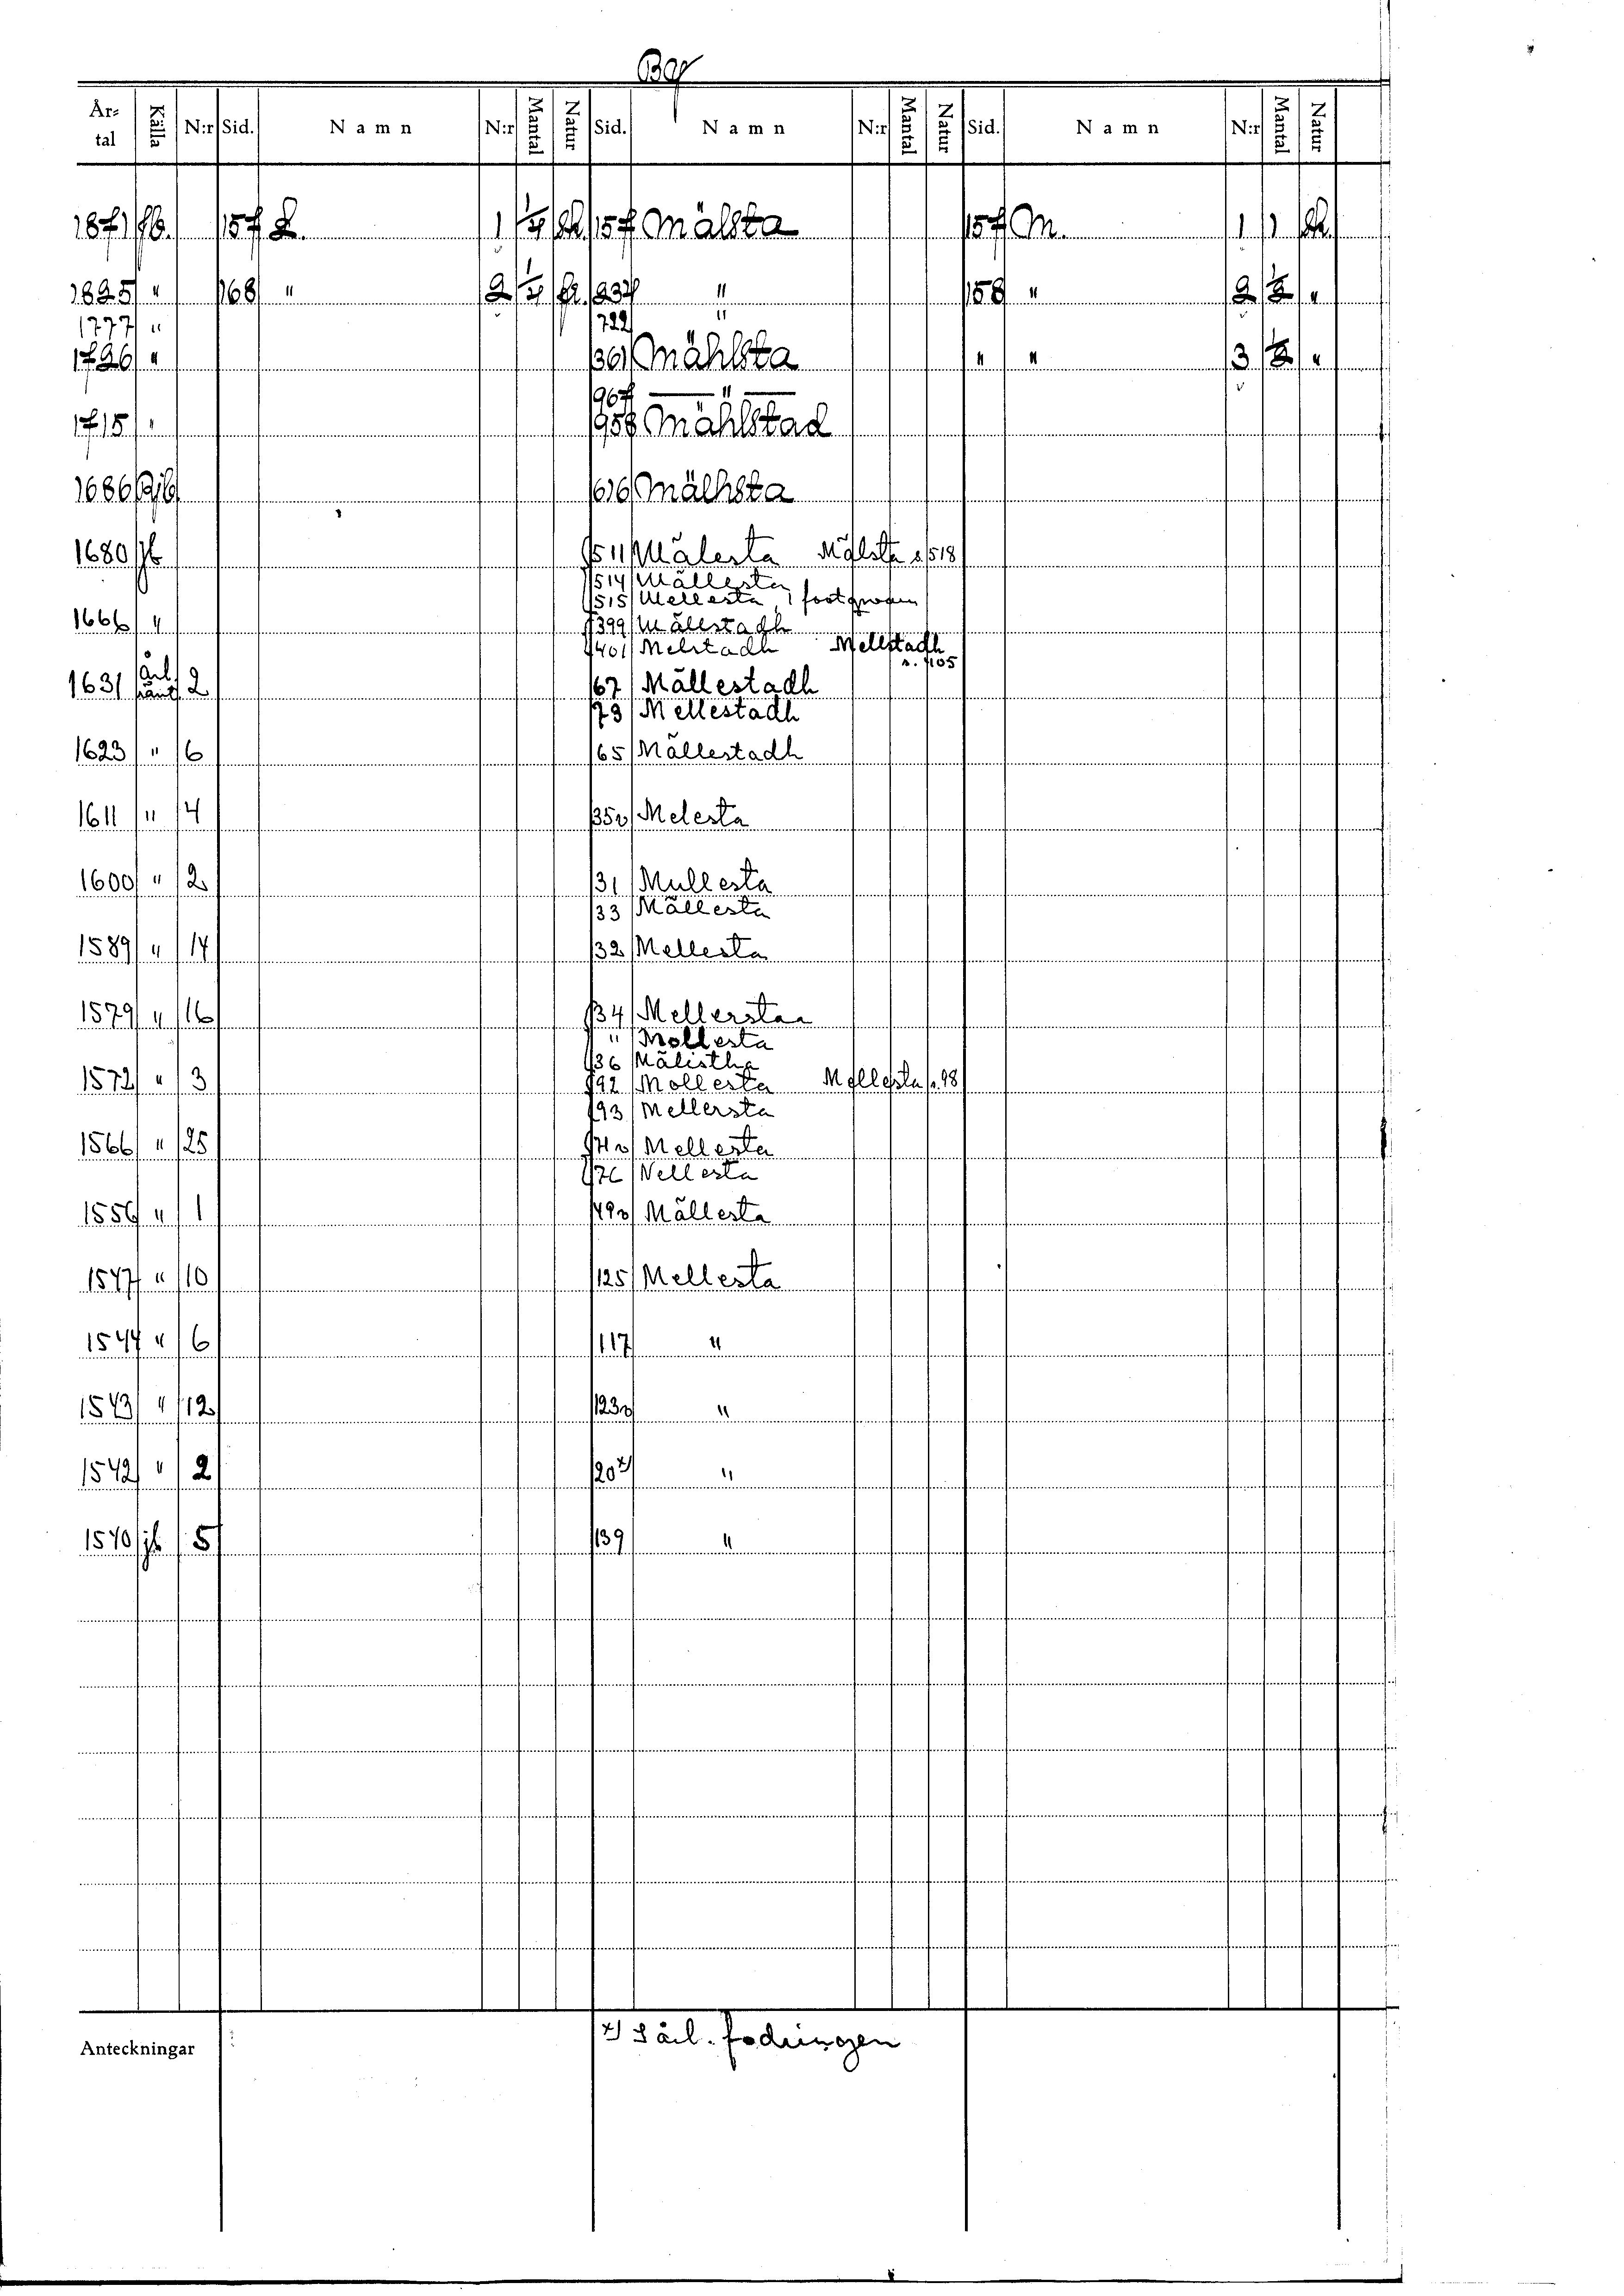 By
År-tal Källa N:r Sid. Namn N:r Mantal Natur Sid. Namn N:r Mantal Natur Sid. Namn N:r Mantal Natur
1871 Jb. 157 L. 1 1/4 Sk. 157 Mälsta 157 M. 1 1 Sk.
1825 " 168 " 2 1/4 fr. 237 " 158 " 2 1/2 "
1777 " 722 "
1726 " 361 Mählsta " " 3 1/2 "
967 — " —
1715 " 958 Mählstad
1686 Rjb 616 Mälhsta
1680 Jb 511 Mälesta Mälsta s. 518
514 Mällesta
515 Mellesta, 1
1666 " 399 Mällstadh
401 Melstadh Mellstadh s. 405
1631 Årl. ränt. 2 67 Mällestadh
73 Mellestadh
1623 " 6 65 Mällestadh
1611 " 4 35v Melesta
1600 " 2 31 Mullesta
33 Mällesta
1589 " 14 32 Mellesta
1579 " 16 34 Mellerstaa
" Mollesta
36 Mälistha
1572 " 3 92 Mollesta Mellesta s. 98
93 Mellersta
1566 " 25 74v Mellesta
76 Nellesta
1556 " 1 49v Mällesta
1547 " 10 125 Mellesta
1544 " 6 117 "
1543 " 12 123v "
1542 " 2 20 x) "
1540 jb 5 139 "
Anteckningar x) Särl. fodringen